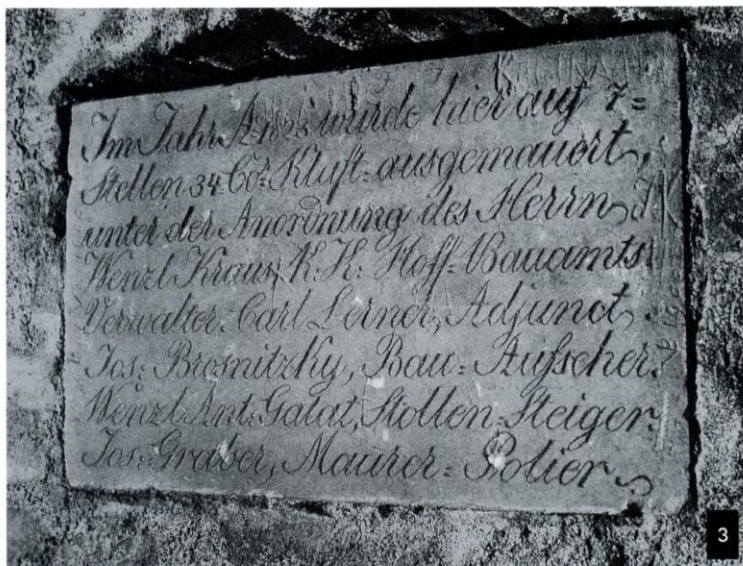 Im Jahr A: 1823 wurde hier auf 7=
Stellen 34 Co: Kluft= ausgemauert,
unter der Anordnung des Herrn
Wenzl Kraus, K: K: Hoff= Bauamts
Verwalter= Carl Lerner, Adjunct,
Jos: Brosnitzky, Bau= Aufseher.
Wenzl Ant: Galat, Stollen= Steiger.
Jos: Graber, Maurer= Polier
3